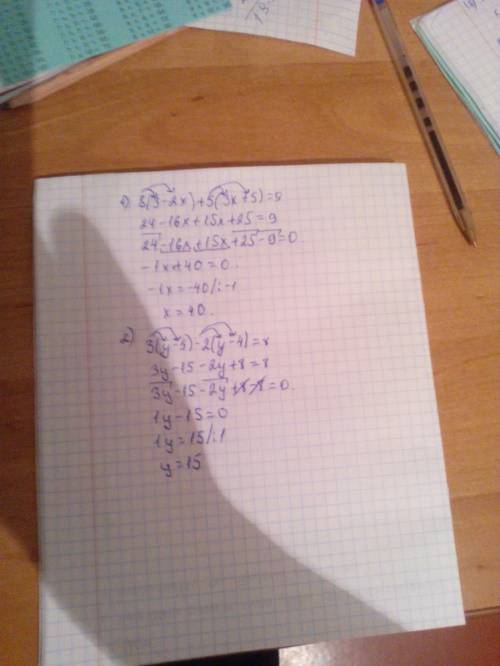 1) 8(3-2x)+5(3x+5)=9
24-16x+15x+25=9
24-16x+15x+25-9=0.
-1x+40=0.
-1x=-40/:-1
x=40.
2) 3(y-5)-2(y-4)=8
3y-15-2y+8=8
3y-15-2y+8-8=0.
1y-15=0
1y=15/:1
y=15